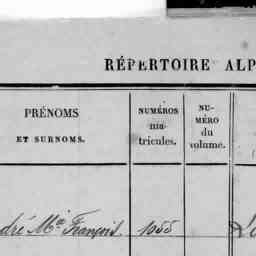 RÉPERTOIRE ALP
PRÉNOMS
ET SURNOMS.
NUMÉROS
ma-
tricules.
NU-
MÉRO
du
volume.
dré Mie François 1055